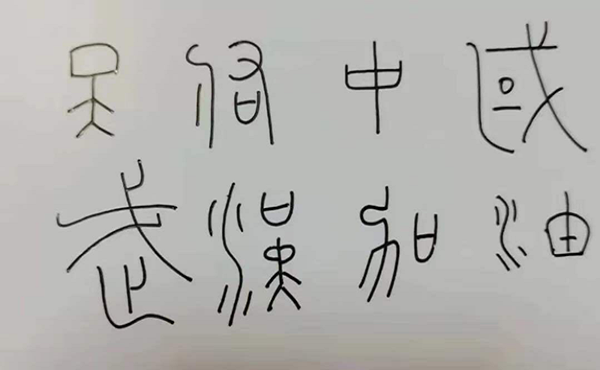 天佑中國
武漢加油